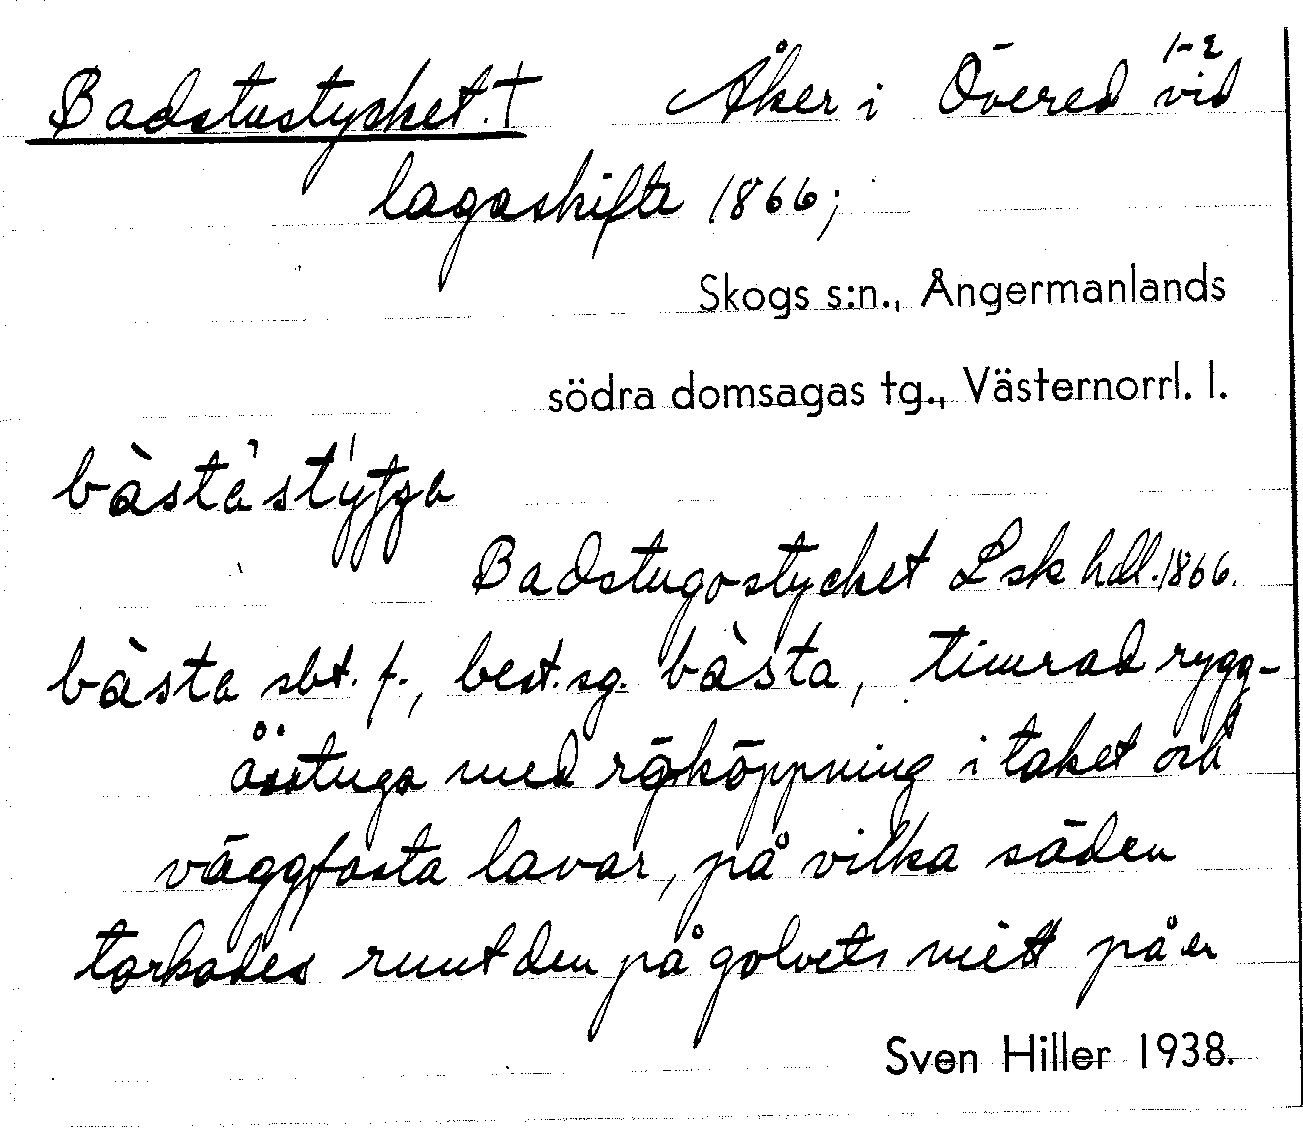 Badstustycket. † Åker i Övered 1-2 vid
lagaskifte 1866;
Skogs s:n., Ångermanlands
södra domsagas tg., Västernorrl. l.
bàsta
Badstugostycket Lsk hdl. 1866.
bàsta sbt. f., best. sg. bàsta, timrad rygg-
åsstuga med rököppning i taket och
väggfasta lavar, på vilka säden
torkades runt den på golvets mitt på en
Sven Hiller 1938.